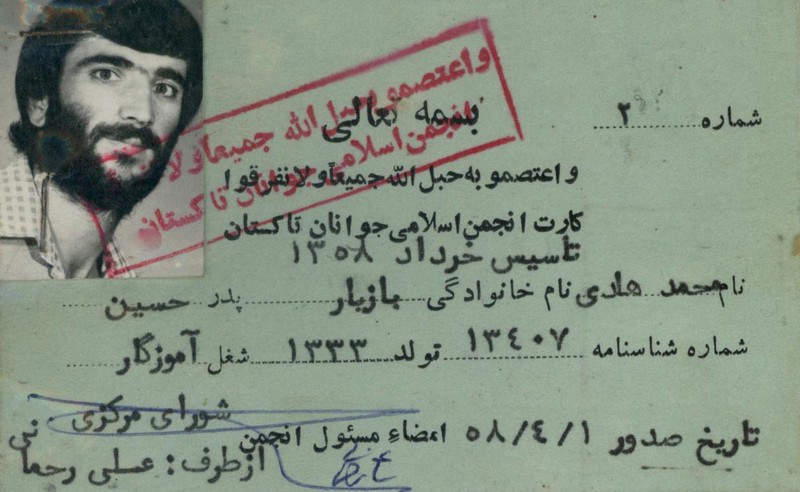 بسمه تعالی
شماره ۲
واعتصمو به حبل الله جمیعاً ولا تفرقوا
کارت انجمن اسلامی جوانان تاکستان
تأسیس خرداد ۱۳۵۸
نام محمد هادی نام خانوادگی بازیار پدر حسین
شماره شناسنامه ۱۳۴۰۷ تولد ۱۳۳۳ شغل آموزگار
تاریخ صدور ۵۸/۴/۱ امضاء مسئول انجمن
شورای مرکزی
از طرف: عسلی رحمانی
واعتصمو بحبل الله جمیعا ولا
انجمن اسلامی جوانان تاکستان